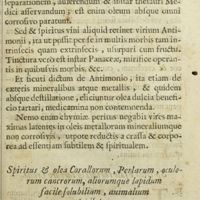 separationem, auferendum & instar thesauri Me-
dici asservandum: est enim oleum absque omni
corrosivo paratum.
Sed & spiritus vini aliquid retinet virium Anti-
monii, ita ut possit per se in multis morbis tam in-
trinsecis quam extrinsecis, usurpari cum fructu.
Tinctura vero est instar Panaceæ, mirificè operan-
tis in quibusvis morbis, &c.
Et sicuti dictum de Antimonio, ita etiam de
cæteris mineralibus atque metallis, & quidem
absque destillatione, eliciuntur olea dulcia benefi-
cio tartari, medicamina non contemnenda.
Nemo enim chymiæ peritus negabit vires ma-
ximas latentes in oleis metallorum mineraliumque
non corrosivis, utpote reductis a crassa & corpo-
rea ad essentiam subtilem & spiritualem.
Spiritus & olea Corallorum, Perlarum, oculo-
rum cancrorum, aliorumque lapidum
facile solubilium, animalium